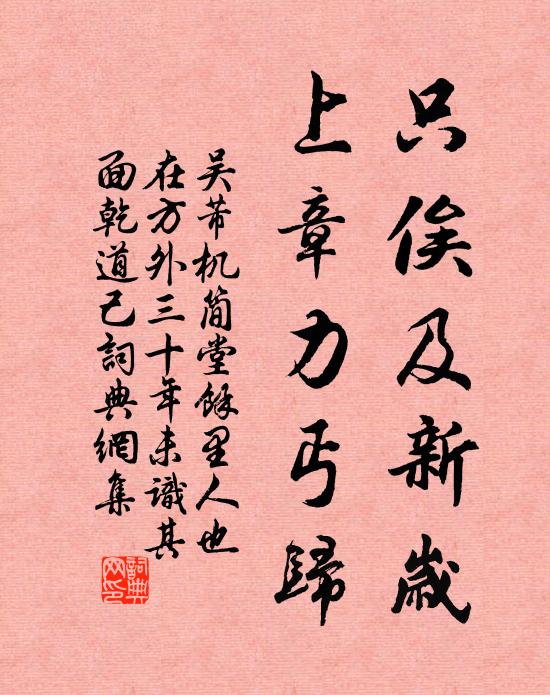 只俟及新歲
上章力丐歸
吴芾机簡堂餘里人也
在方外三十年未識其
面乾道己詞典網集
詞典网印